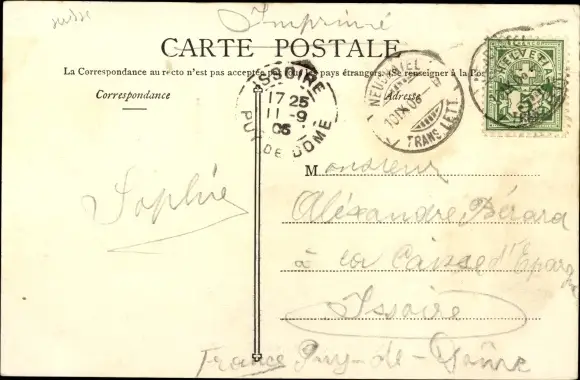 suisse
Imprimé
CARTE POSTALE
La Correspondance au recto n'est pas acceptée par tous les pays étrangers. (Se renseigner à la Pos
Correspondance
Adresse
ISSOIRE
17 25
11 - 9
06
PUY-DE-DOME
NEUCHATEL
10 IX 06
TRANS. LETT.
HELVETIA
Monsieur
Sophie
Alexandre Bérard
à la Caisse d'Epargne
Issoire
France Puy-de-Dôme